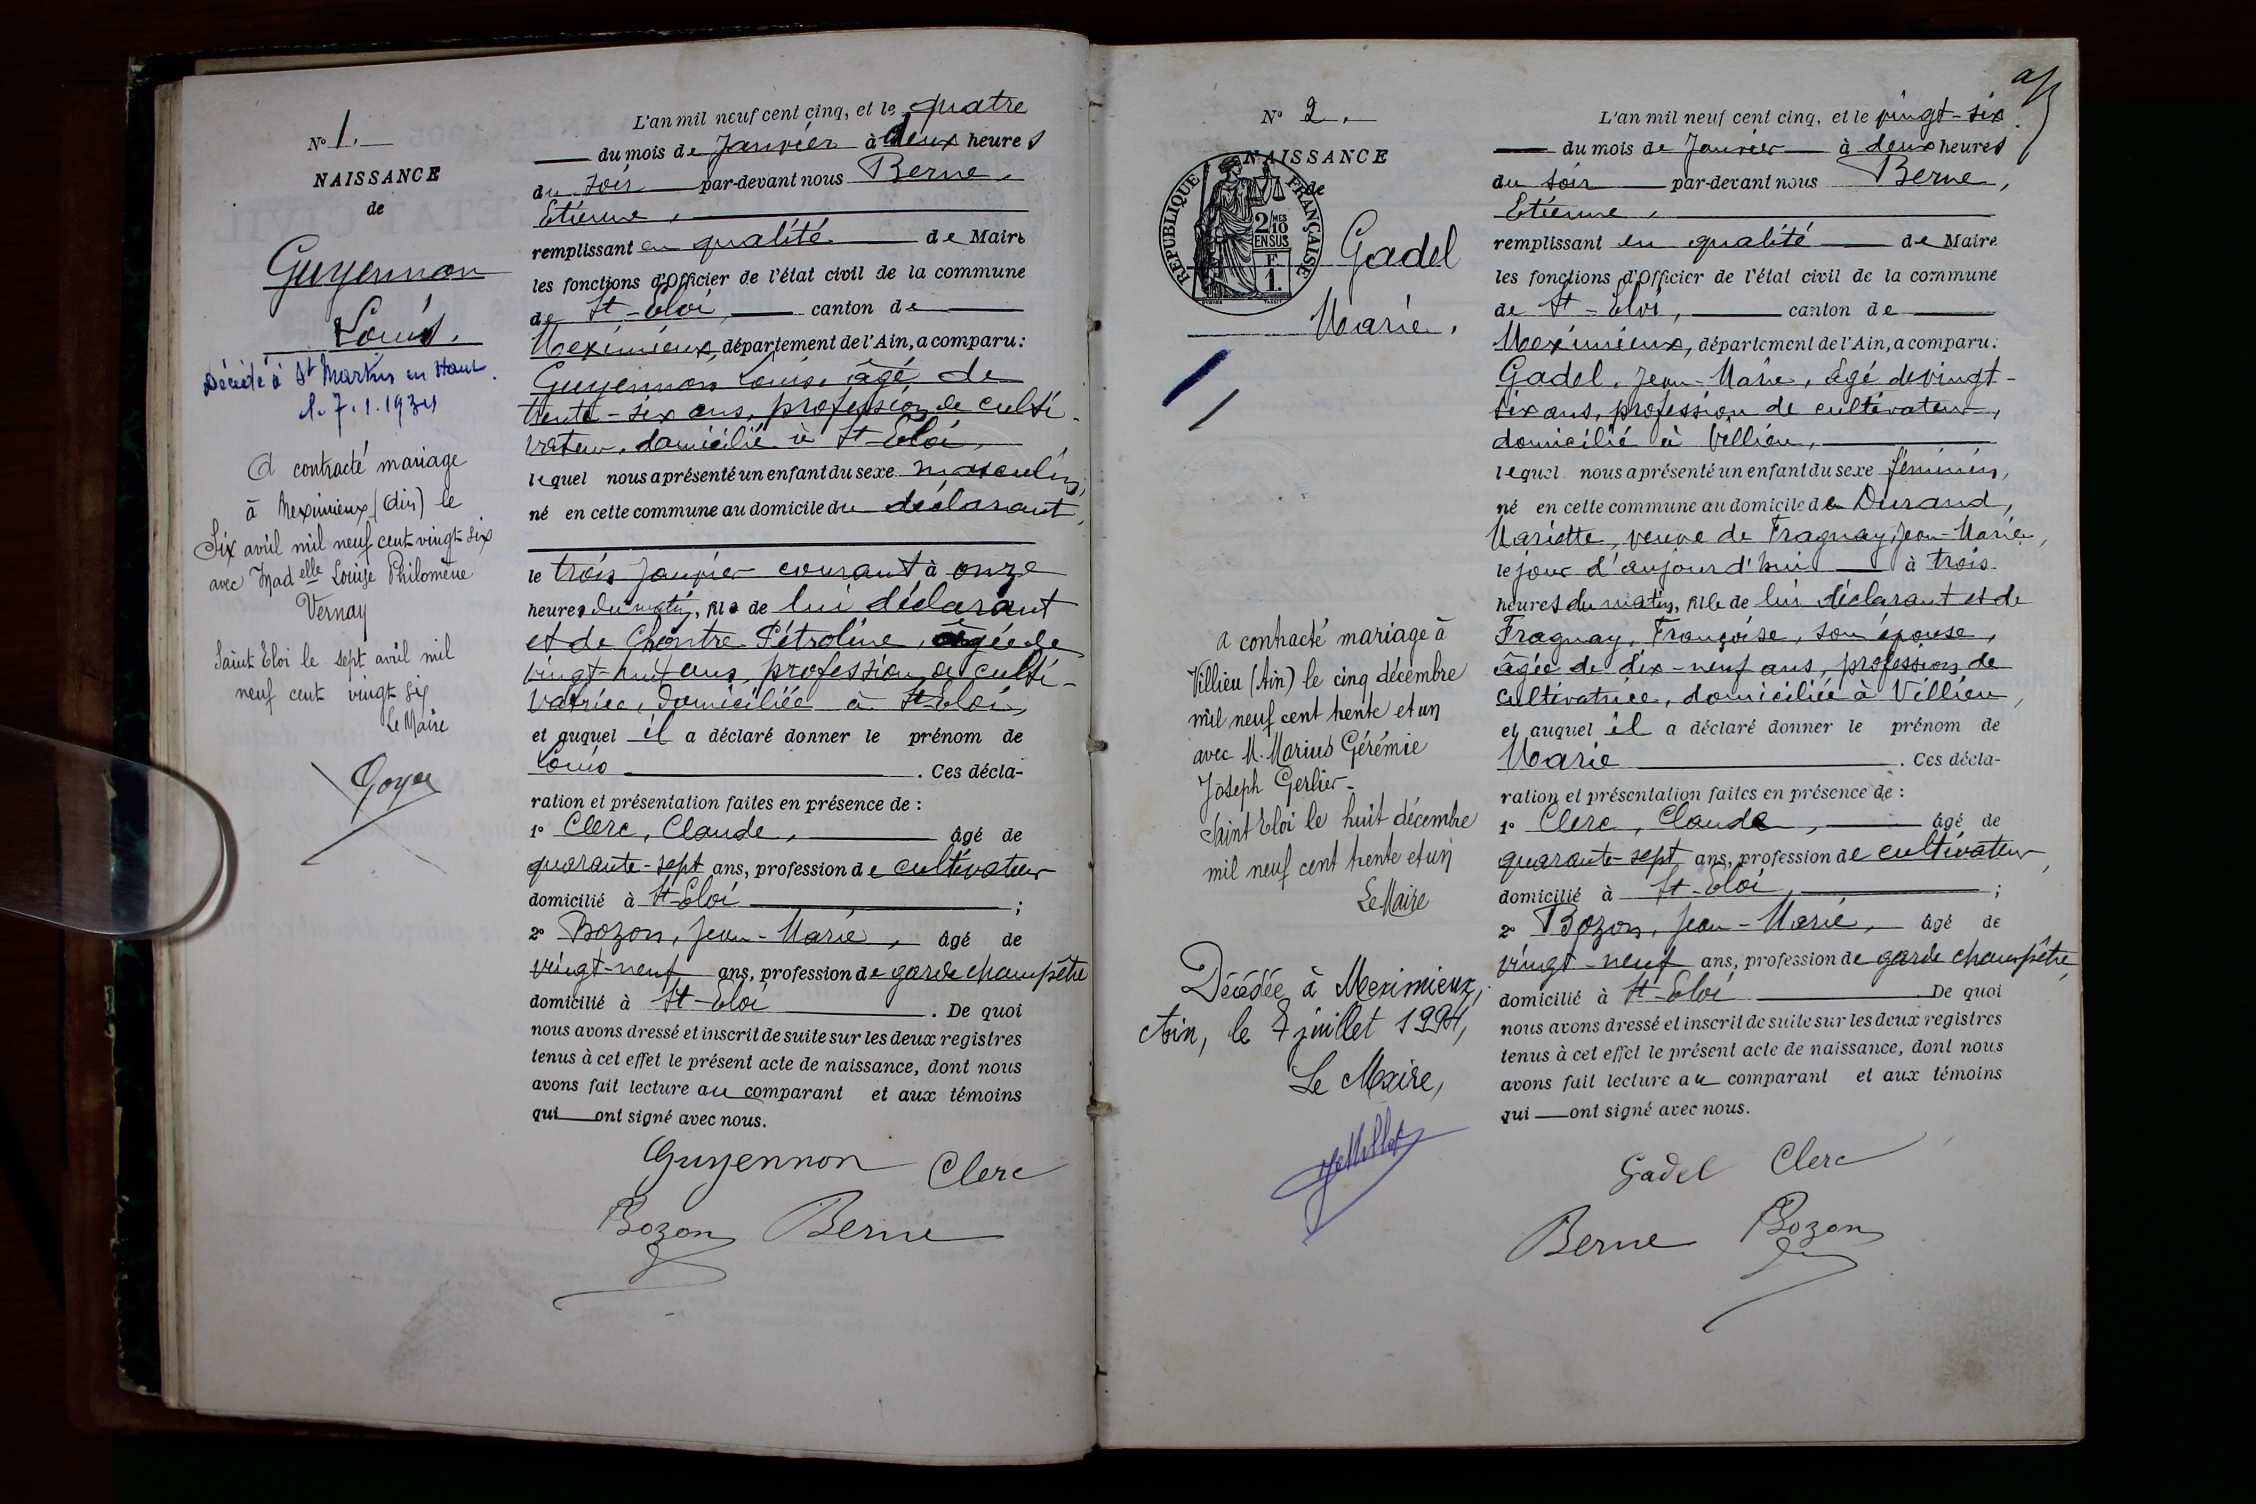 N° 1.
NAISSANCE
de
Guyennon
Louis.
Décédé à St Martin en Haut
le 7.1.1934
A contracté mariage
à Meximieux (Ain) le
Six avril mil neuf cent vingt six
avec Madelle Louise Philomène
Vernay
Saint Eloi le sept avril mil
neuf cent vingt six
Le Maire
Goyer
L'an mil neuf cent cinq, et le quatre
du mois de Janvier à deux heures
du soir par-devant nous Berne,
Etienne,
remplissant en qualité de Maire
les fonctions d'Officier de l'état civil de la commune
de St-Eloi, canton de
Meximieux, département de l'Ain, a comparu:
Guyennon Louis, âgé de
trente-six ans, profession de culti-
vateur, domicilié à St-Eloi,
lequel nous a présenté un enfant du sexe masculin,
né en cette commune au domicile du déclarant,
le trois Janvier courant à onze
heures du matin, fils de lui déclarant
et de Chontre Pétroline, âgée de
vingt-huit ans, profession de culti-
vatrice, domiciliée à St-Eloi,
et auquel il a déclaré donner le prénom de
Louis . Ces décla-
ration et présentation faites en présence de :
1° Clerc, Claude, âgé de
quarante-sept ans, profession de cultivateur
domicilié à St-Eloi ;
2° Bozon, Jean-Marie, âgé de
vingt-neuf ans, profession de garde champêtre
domicilié à St-Eloi . De quoi
nous avons dressé et inscrit de suite sur les deux registres
tenus à cet effet le présent acte de naissance, dont nous
avons fait lecture au comparant et aux témoins
qui ont signé avec nous.
Guyennon Clerc
Bozon Berne
N° 2.
NAISSANCE
de
REPUBLIQUE FRANÇAISE
2/10 MES
EN SUS
F.
1.
Gadel
Marie.
a contracté mariage à
Villieu (Ain) le cinq décembre
mil neuf cent trente et un
avec M. Marius Gérémie
Joseph Gerlier.
Saint Eloi le huit décembre
mil neuf cent trente et un
Le Maire
Décédée à Meximieux,
Ain, le 7 juillet 1994,
Le Maire,
L'an mil neuf cent cinq, et le vingt-six
du mois de Janvier à deux heures
du soir par-devant nous Berne,
Etienne,
remplissant en qualité de Maire
les fonctions d'Officier de l'état civil de la commune
de St-Eloi, canton de
Meximieux, département de l'Ain, a comparu:
Gadel, Jean-Marie, âgé de vingt-
six ans, profession de cultivateur,
domicilié à Villieu,
lequel nous a présenté un enfant du sexe féminin,
né en cette commune au domicile de Durand,
Mariette, veuve de Fragnay, Jean-Marie,
le jour d'aujourd'hui à trois
heures du matin, fille de lui déclarant et de
Fragnay, Françoise, son épouse,
âgée de dix-neuf ans, profession de
cultivatrice, domiciliée à Villieu,
et auquel il a déclaré donner le prénom de
Marie . Ces décla-
ration et présentation faites en présence de :
1° Clerc, Claude, âgé de
quarante-sept ans, profession de cultivateur,
domicilié à St-Eloi, ;
2° Bozon, Jean-Marie, âgé de
vingt-neuf ans, profession de garde champêtre,
domicilié à St-Eloi De quoi
nous avons dressé et inscrit de suite sur les deux registres
tenus à cet effet le présent acte de naissance, dont nous
avons fait lecture au comparant et aux témoins
qui ont signé avec nous.
Gadel Clerc
Berne Bozon